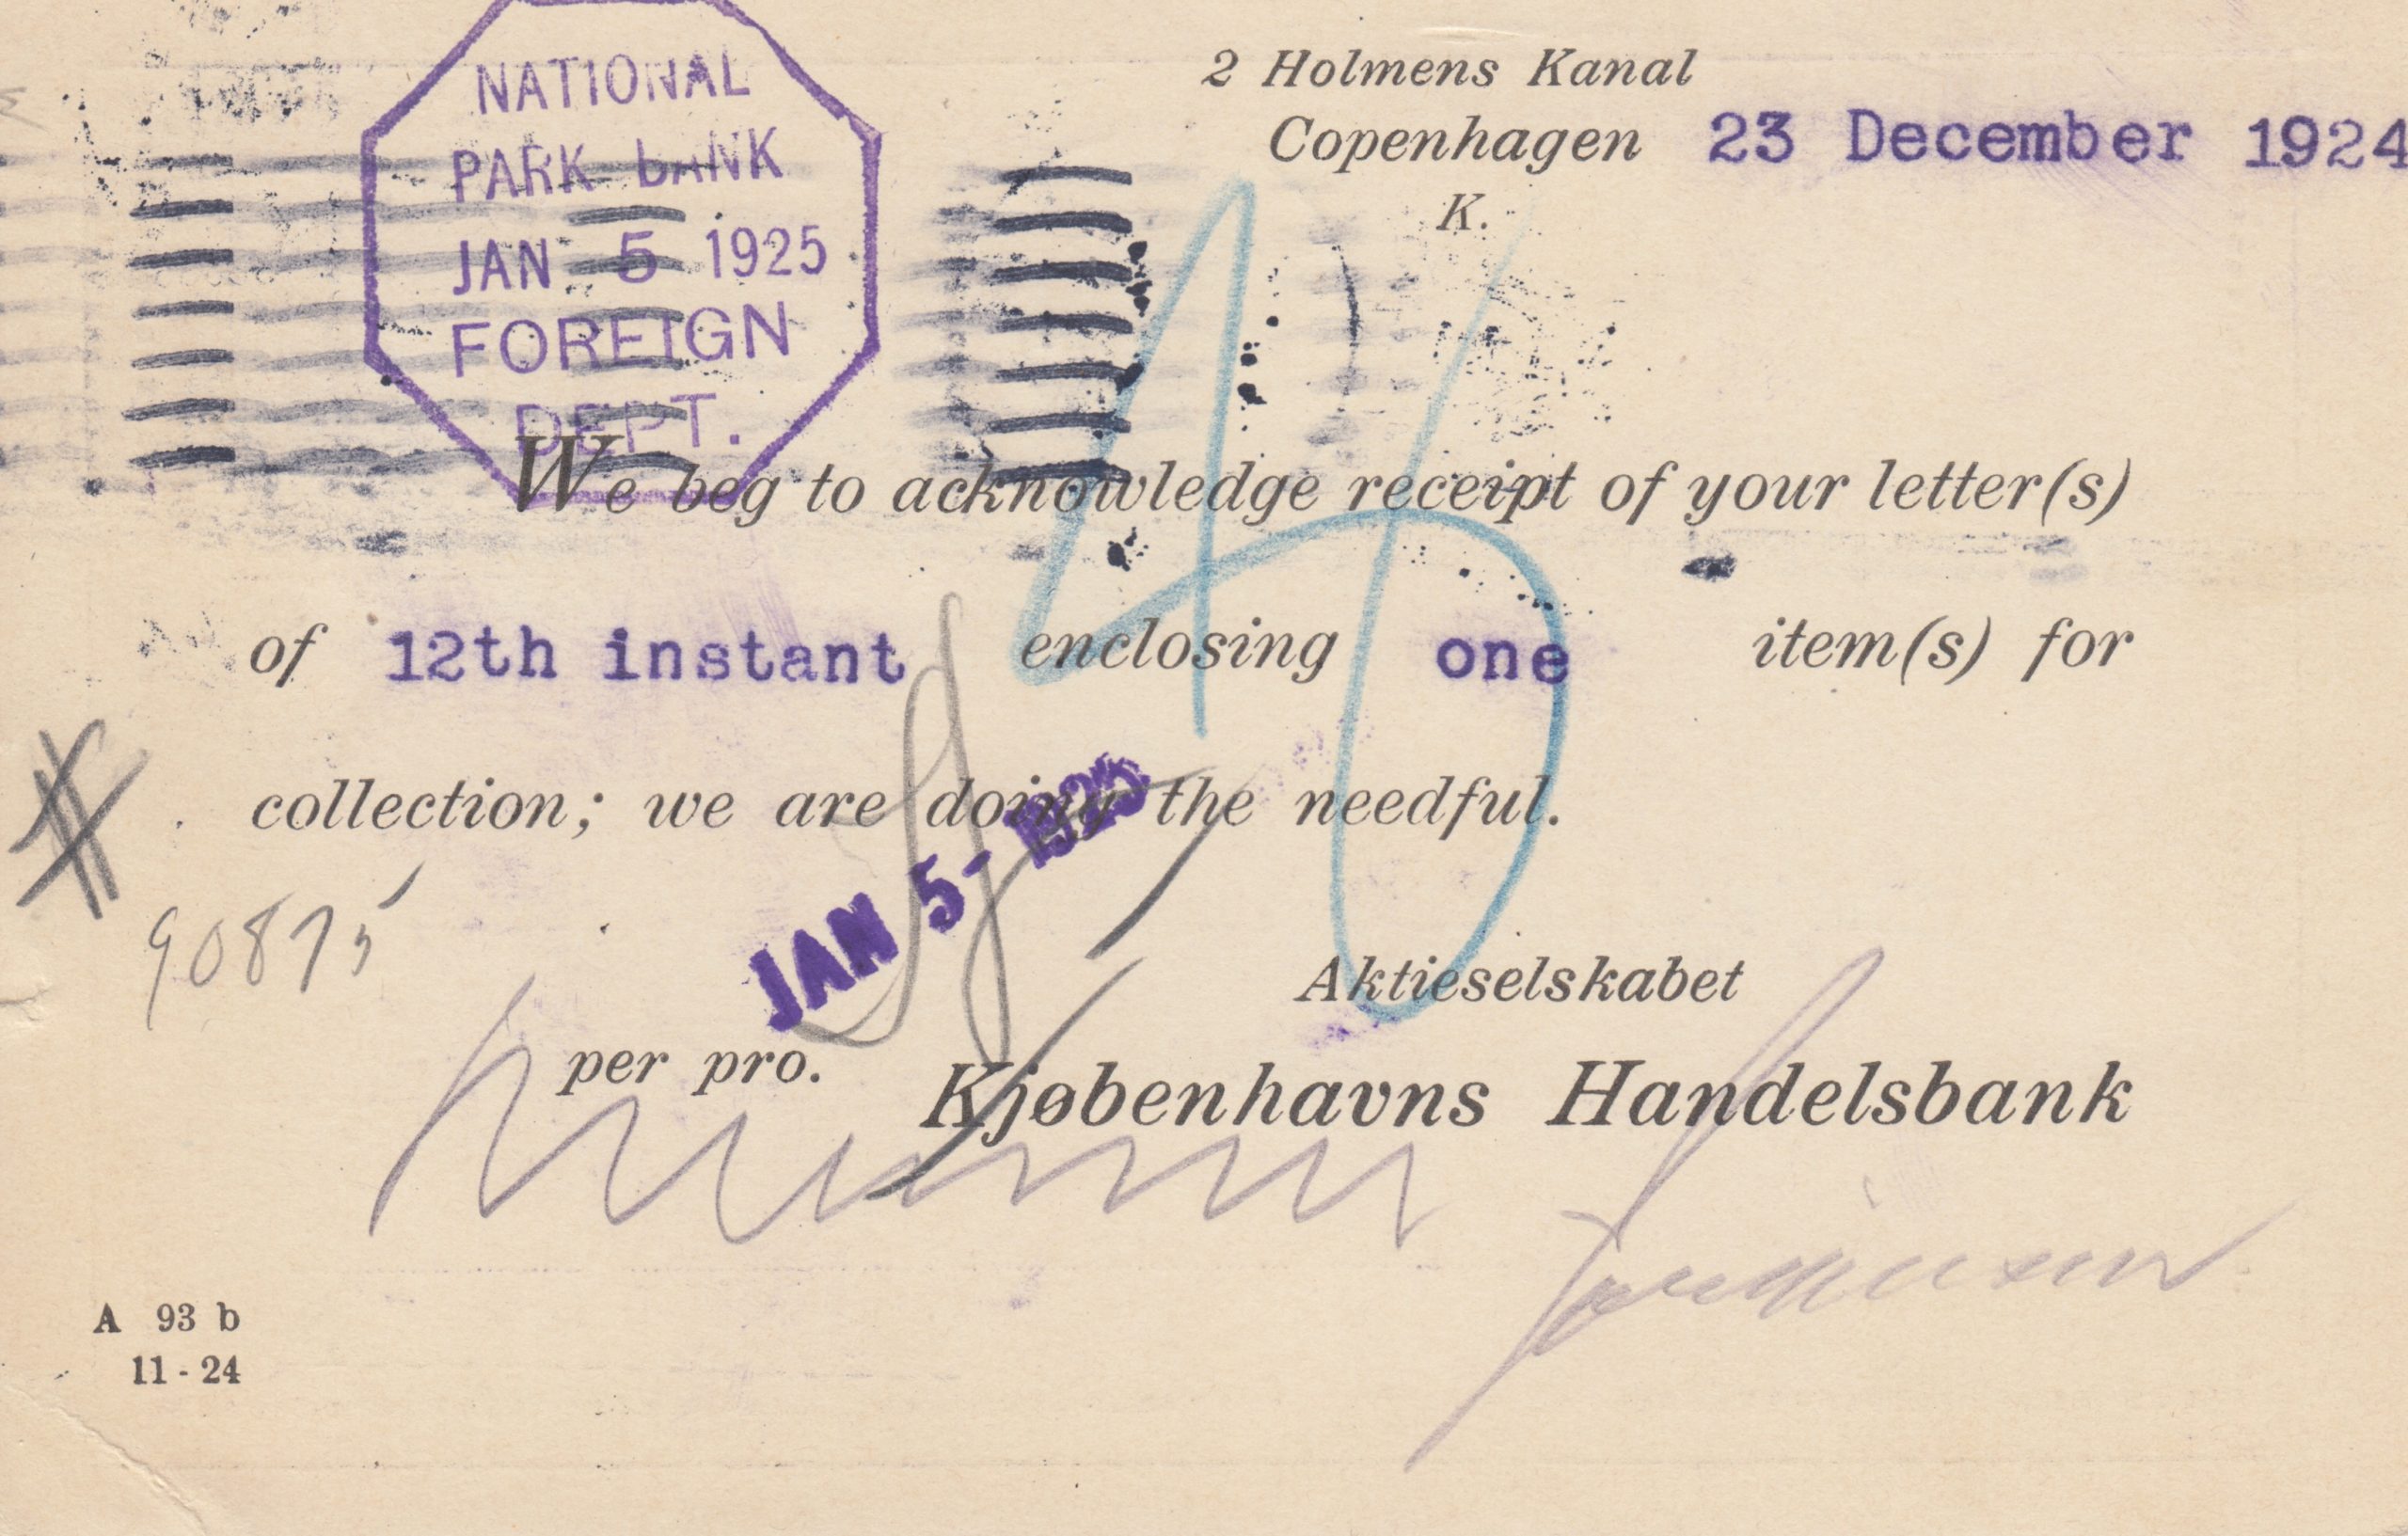 NATIONAL
PARK BANK
JAN 5 1925
FOREIGN
DEPT.
2 Holmens Kanal
Copenhagen 23 December 1924
K.
We beg to acknowledge receipt of your letter(s)
of 12th instant enclosing one item(s) for
collection; we are doing the needful.
JAN 5- 1925
90875
Aktieselskabet
per pro. Kjøbenhavns Handelsbank
A 93 b
11-24